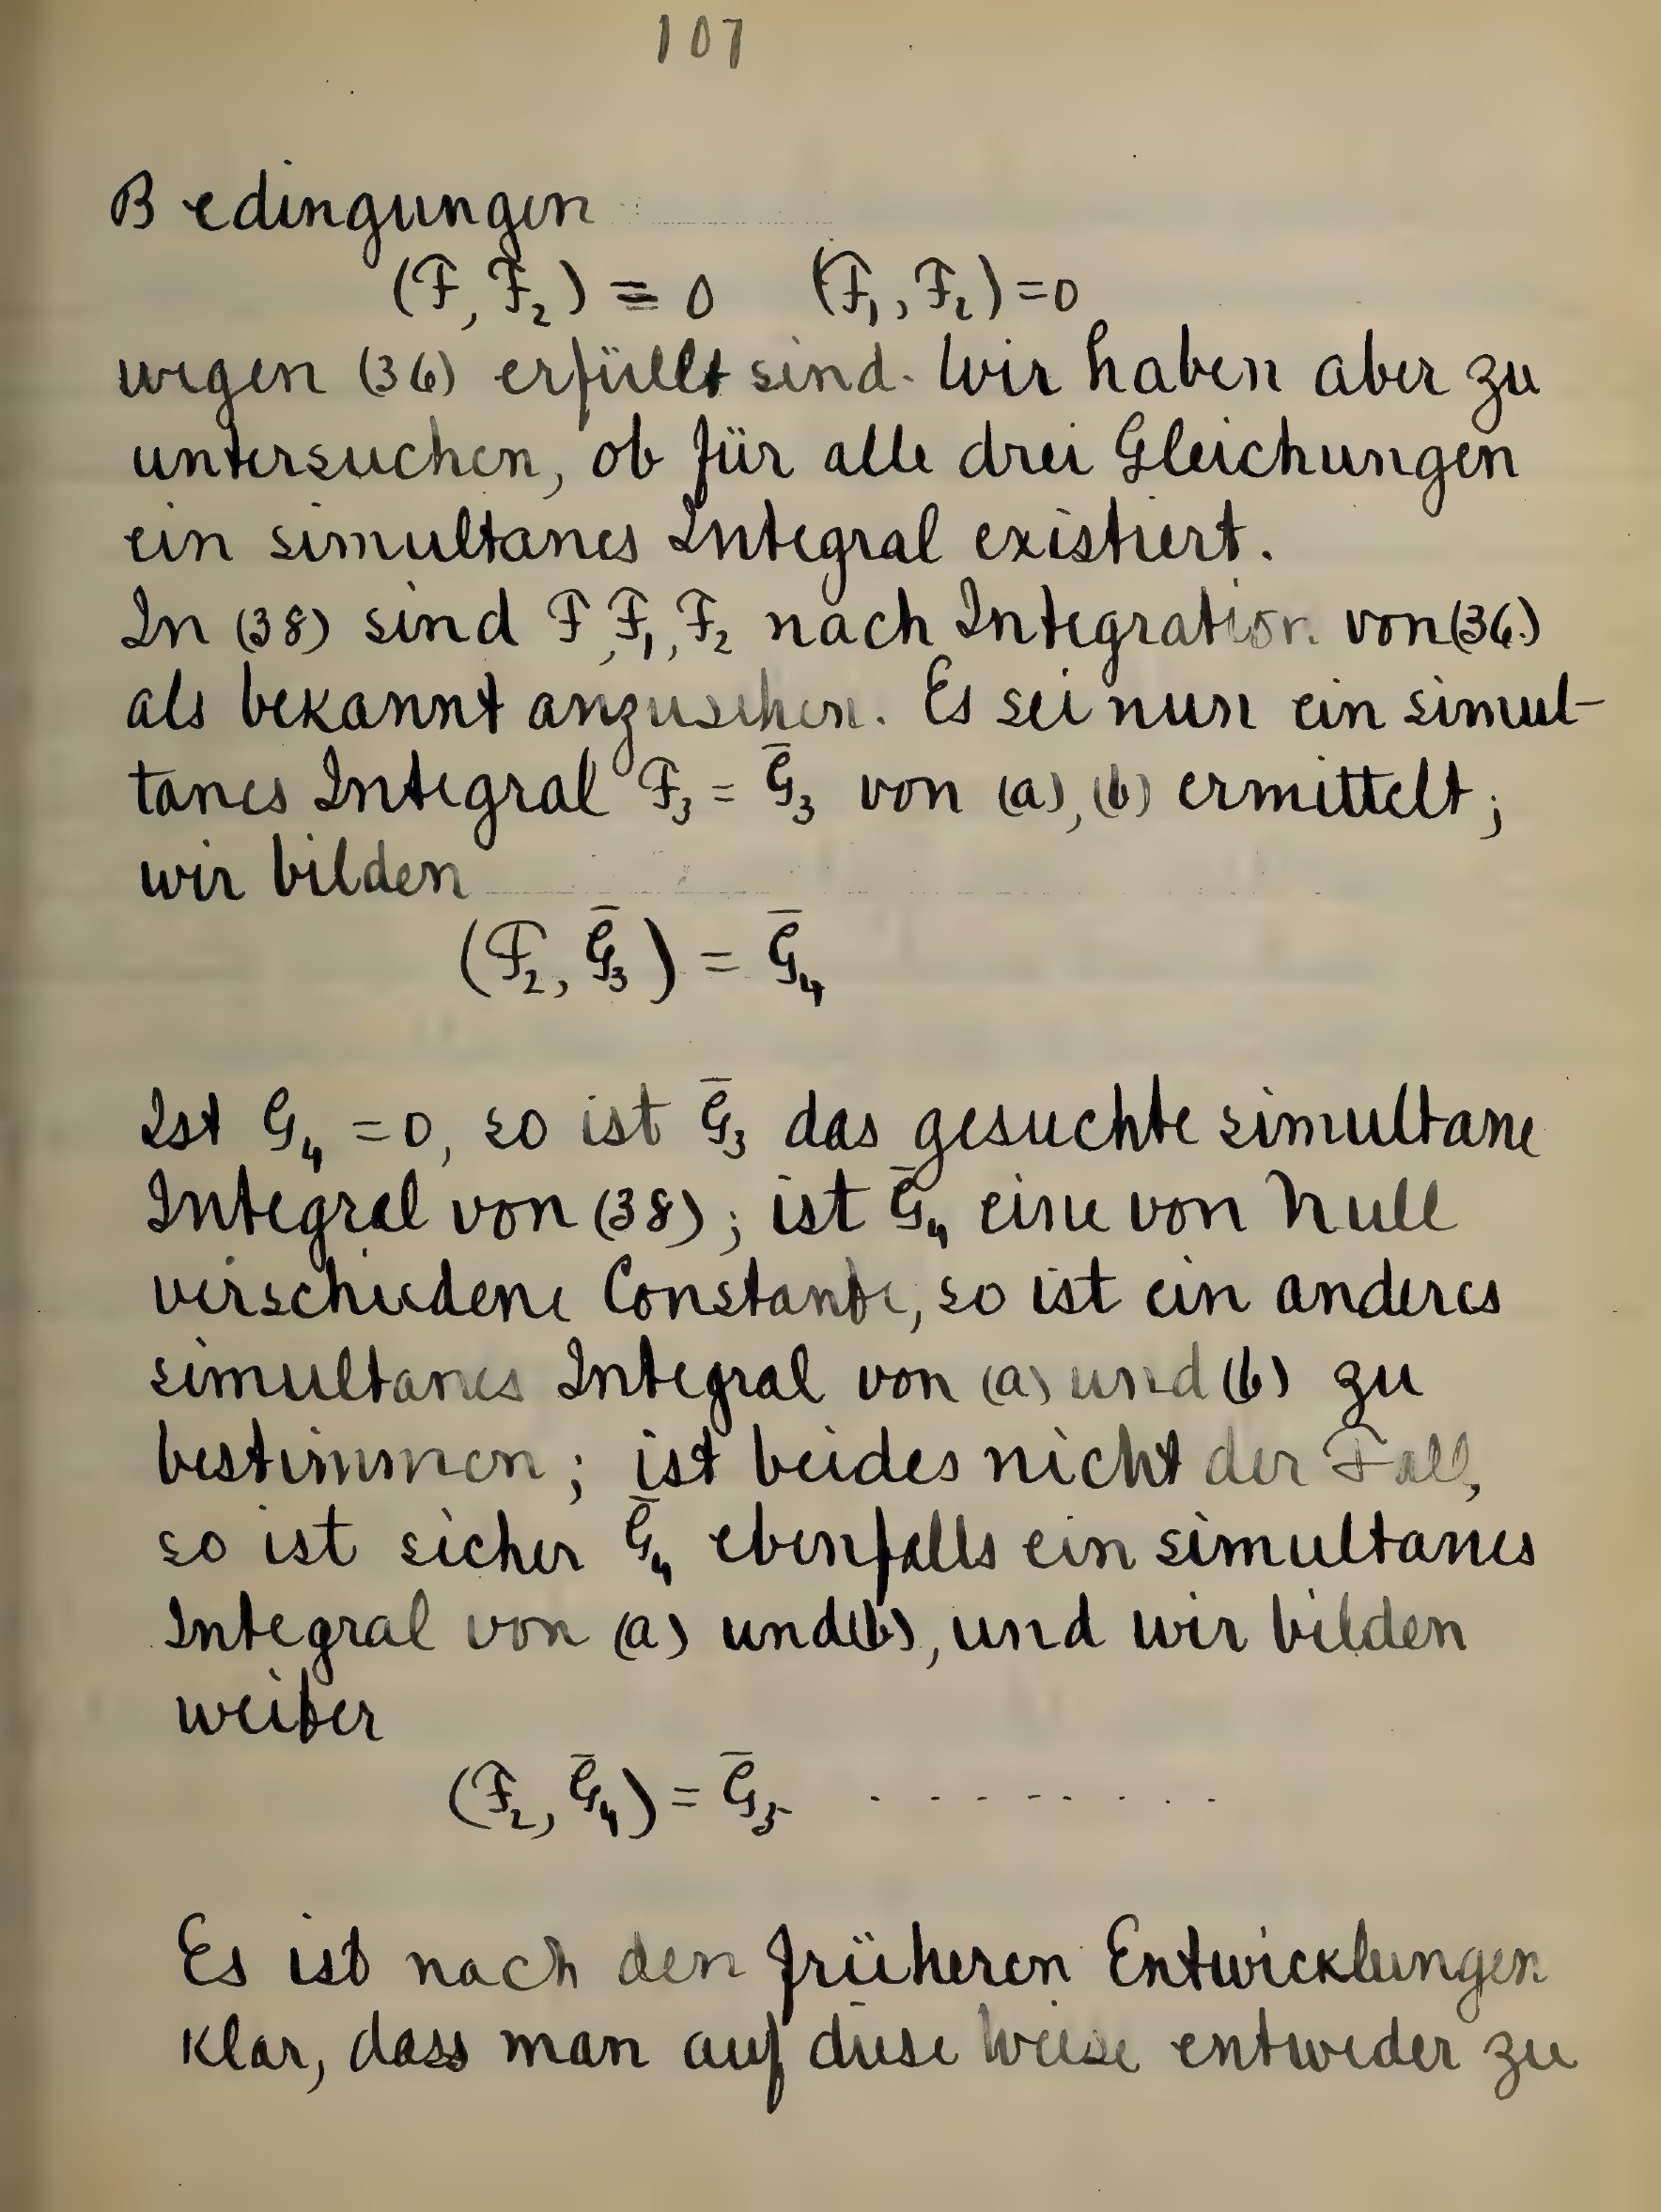 107
Bedingungen
(F, F₂) = 0 (F₁, F₂) = 0
wegen (36) erfüllt sind. Wir haben aber zu
untersuchen, ob für alle drei Gleichungen
ein simultanes Integral existiert.
In (38) sind F, F₁, F₂ nach Integration von (36)
als bekannt anzusehen. Es sei nun ein simul-
tanes Integral F₃ = G̅₃ von (a), (b) ermittelt;
wir bilden
(F₂, G̅₃) = G̅₄
Ist G₄ = 0, so ist G̅₃ das gesuchte simultane
Integral von (38); ist G̅₄ eine von Null
verschiedene Constante, so ist ein anderes
simultanes Integral von (a) und (b) zu
bestimmen; ist beides nicht der Fall,
so ist sicher G̅₄ ebenfalls ein simultanes
Integral von (a) und (b), und wir bilden
weiter
(F₂, G̅₄) = G̅₅ . . . . . . . .
Es ist nach den früheren Entwicklungen
klar, dass man auf diese Weise entweder zu